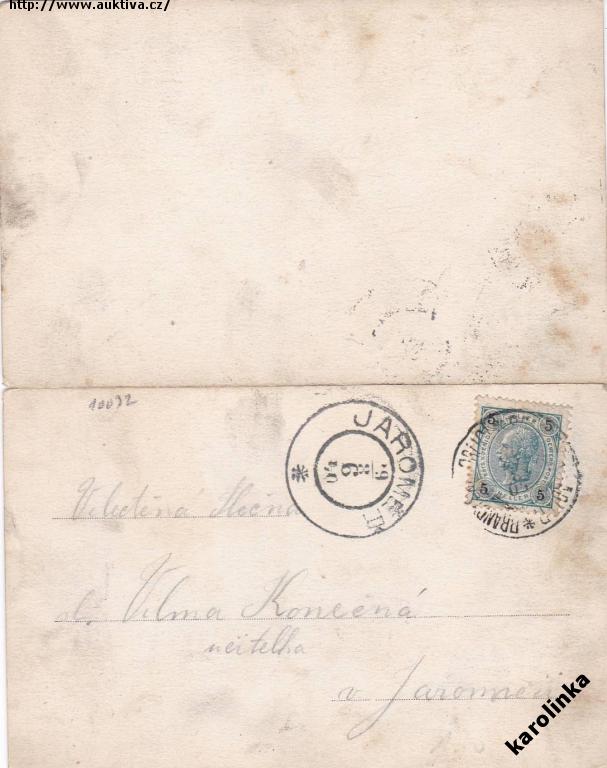 http://www.auktiva.cz/
10032
JAROMĚŘ
6 8 9 04
5 5
5 5
Velectěná Slečna
sl. Vilma Konečná
učitelka
v Jaroměři
karolinka